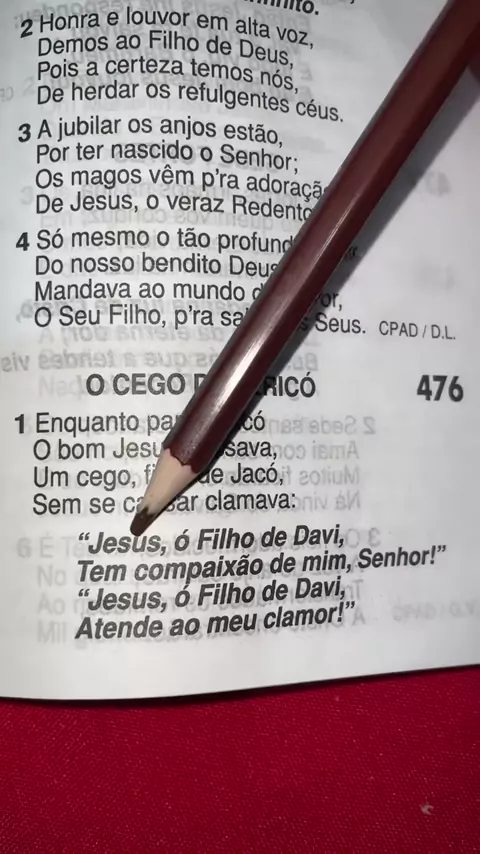 2 Honra e louvor em alta voz,
Demos ao Filho de Deus,
Pois a certeza temos nós,
De herdar os refulgentes céus.
3 A jubilar os anjos estão,
Por ter nascido o Senhor;
Os magos vêm p'ra
De Jesus, o veraz
4 Só mesmo o tão
Do nosso bendito
Mandava ao mundo
O Seu Filho, p'ra Seus. CPAD / D.L.
O CEGO 476
1 Enquanto
O bom
Um cego, de Jacó,
Sem se clamava:
“Jesus, ó Filho de Davi,
Tem compaixão de mim, Senhor!”
“Jesus, ó Filho de Davi,
Atende ao meu clamor!”